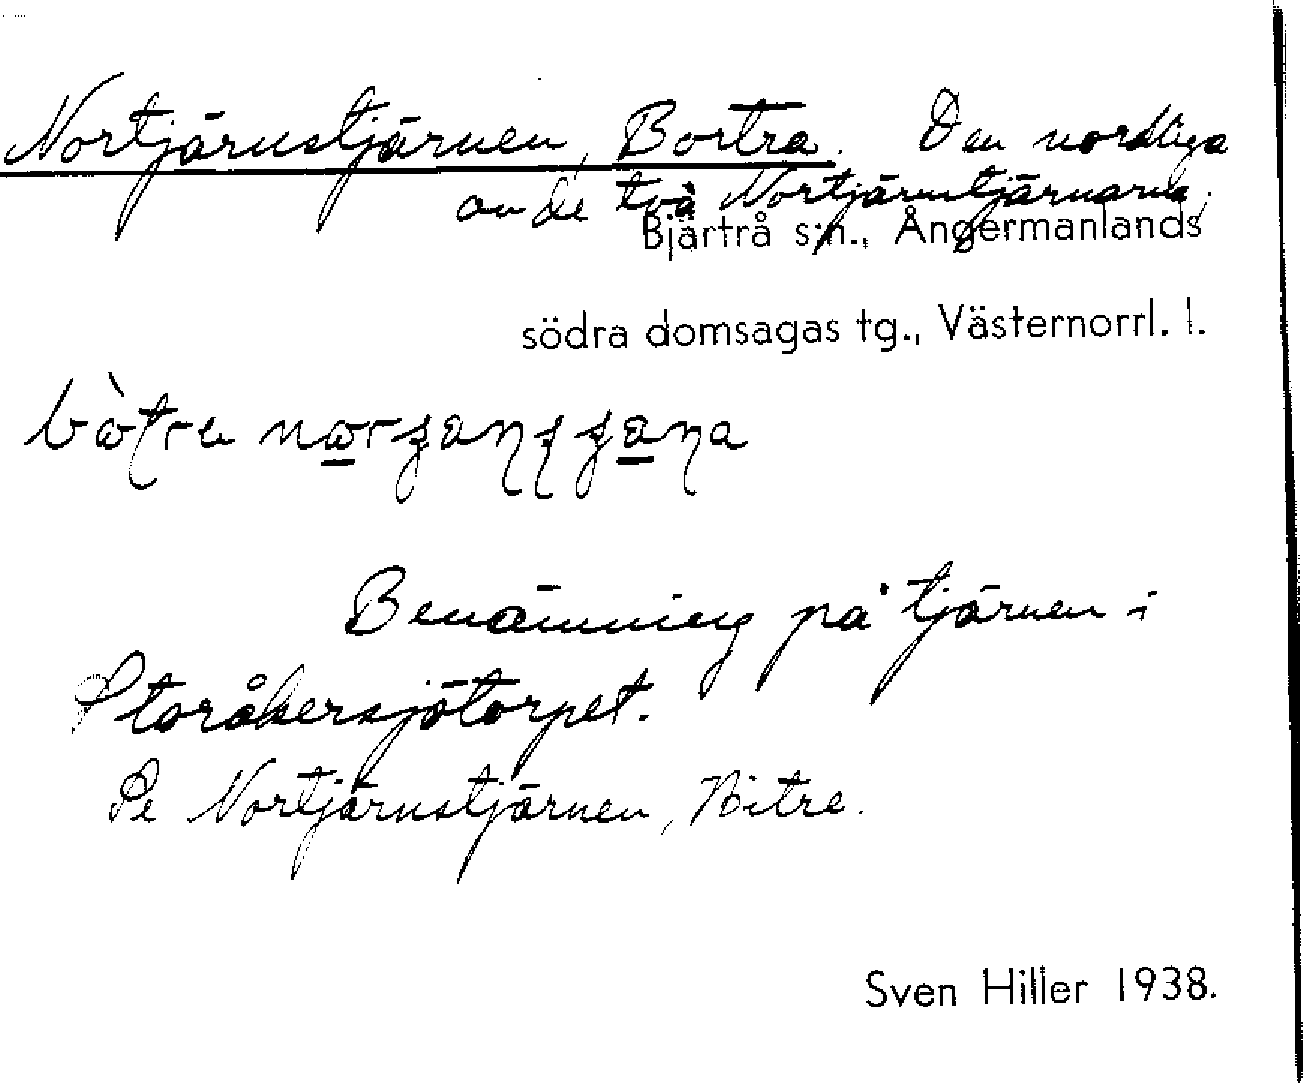 Nortjärnstjärnen, Bortra. Den nordliga
av de två Nortjärnstjärnarna.
Bjärtrå s:n., Ångermanlands
södra domsagas tg., Västernorrl. l.
Benämning på tjärnen i
Storåkersjötorpet.
Se Nortjärnstjärnen, Hitre.
Sven Hiller 1938.